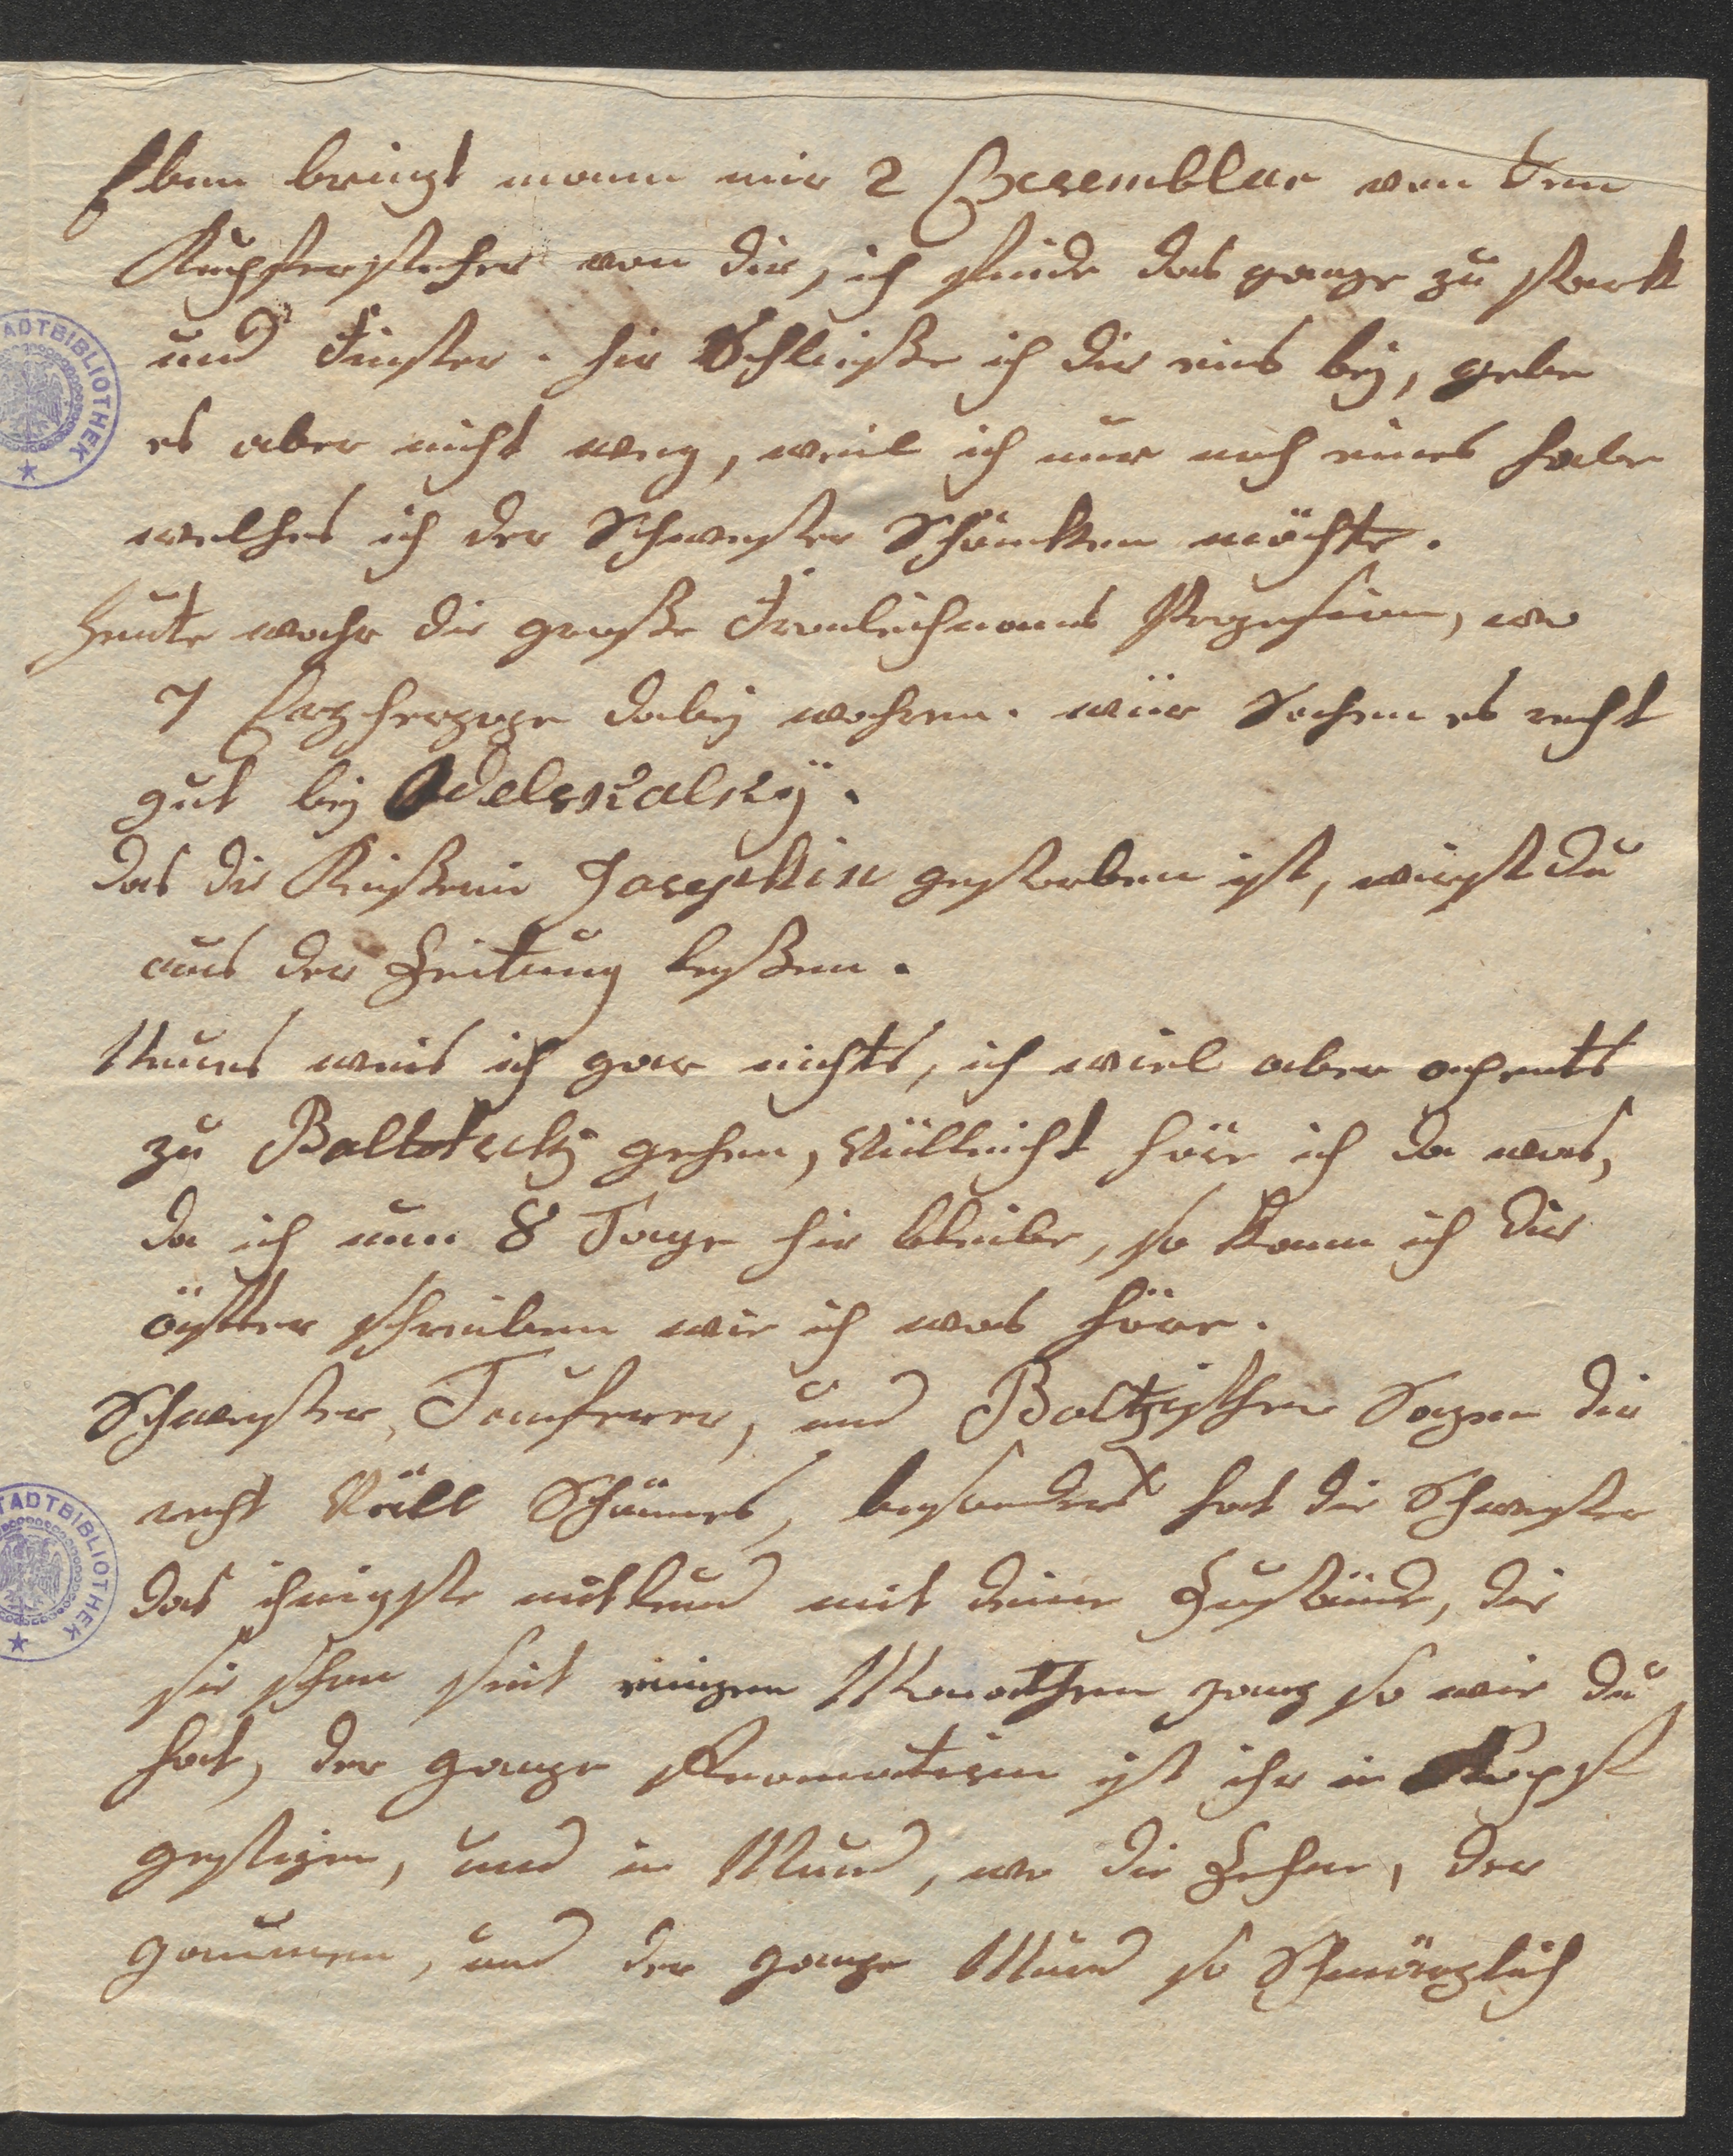 Eben bringt mann mir 2 Excemblar von dem
Kupfersticher von dir, ich finde das ganze zu stark
und Finster. hir Schließe ich dir eins bej, gebe
es aber nicht weg, weil ich nur noch eines habe
welches ich der Schwester Schäncken möchte.
Heute wahr die große Fronleichnams Prozesion, wo
7 Erzherzoge dabej wahren. wür Sachen es recht
gut bej Odelskalsky.
das die Keißerin Josephin gestorben ist, wirst du
aus der Zeitung leßen.
Neues weis ich gar nichts, ich wiel aber abents
zu gehen, Vülleicht höre ich da was,
da ich nun 8 Tage hir bleibe, so kann ich dir
öfter schreiben wie ich was höre.
Schwester, Tauferer, und Sagen dir
recht Väll Schännes, besonders hat die Schwester
das ihnigste mitleid mit deine Zustände, die
sie schon seit einigen Monathen ganz so wie du
hat, der ganze Reomatism ist ihr in Kopf
gestigen, und in Mund, wo die Zehne, der
gaumen, und der ganze Mund so Schmärzlich
STADTBIBLIOTHEK
STADTBIBLIOTHEK